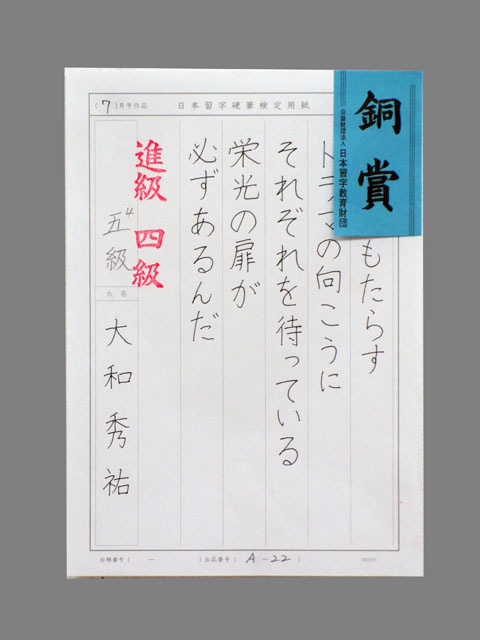 (7)月号作品
日本習字硬筆検定用紙
銅賞
公益財団法人 日本習字教育財団
もたらす
ドラマの向こうに
それぞれを待っている
栄光の扉が
必ずあるんだ
進級 四級
五級
4
氏名
大和秀祐
会帳番号( - )出品番号( A-22 )